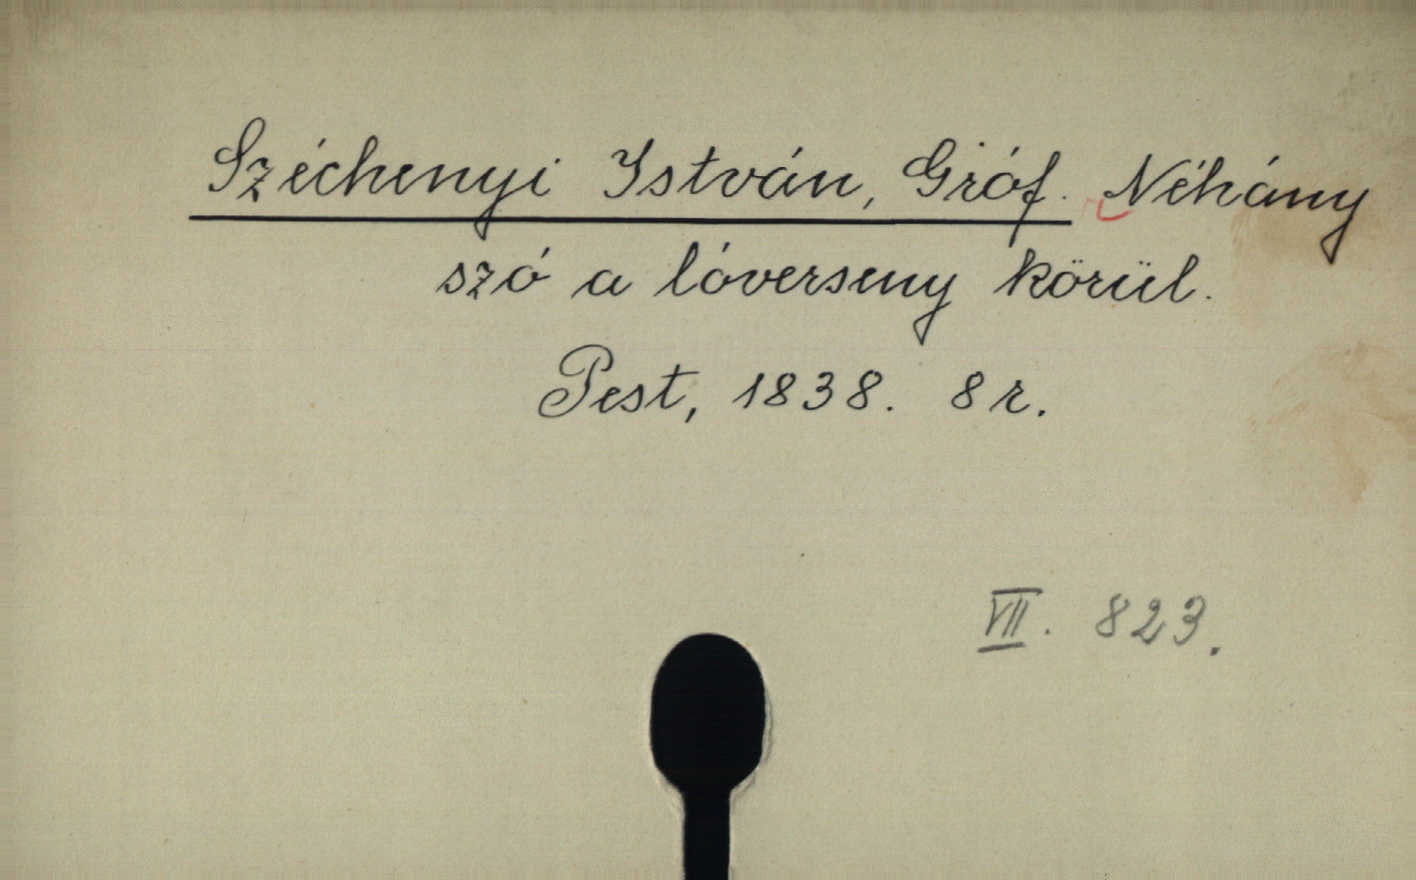 Széchenyi István, Gróf. Néhány
szó a lóverseny körül.
Pest, 1838. 8 r.
VII. 823.